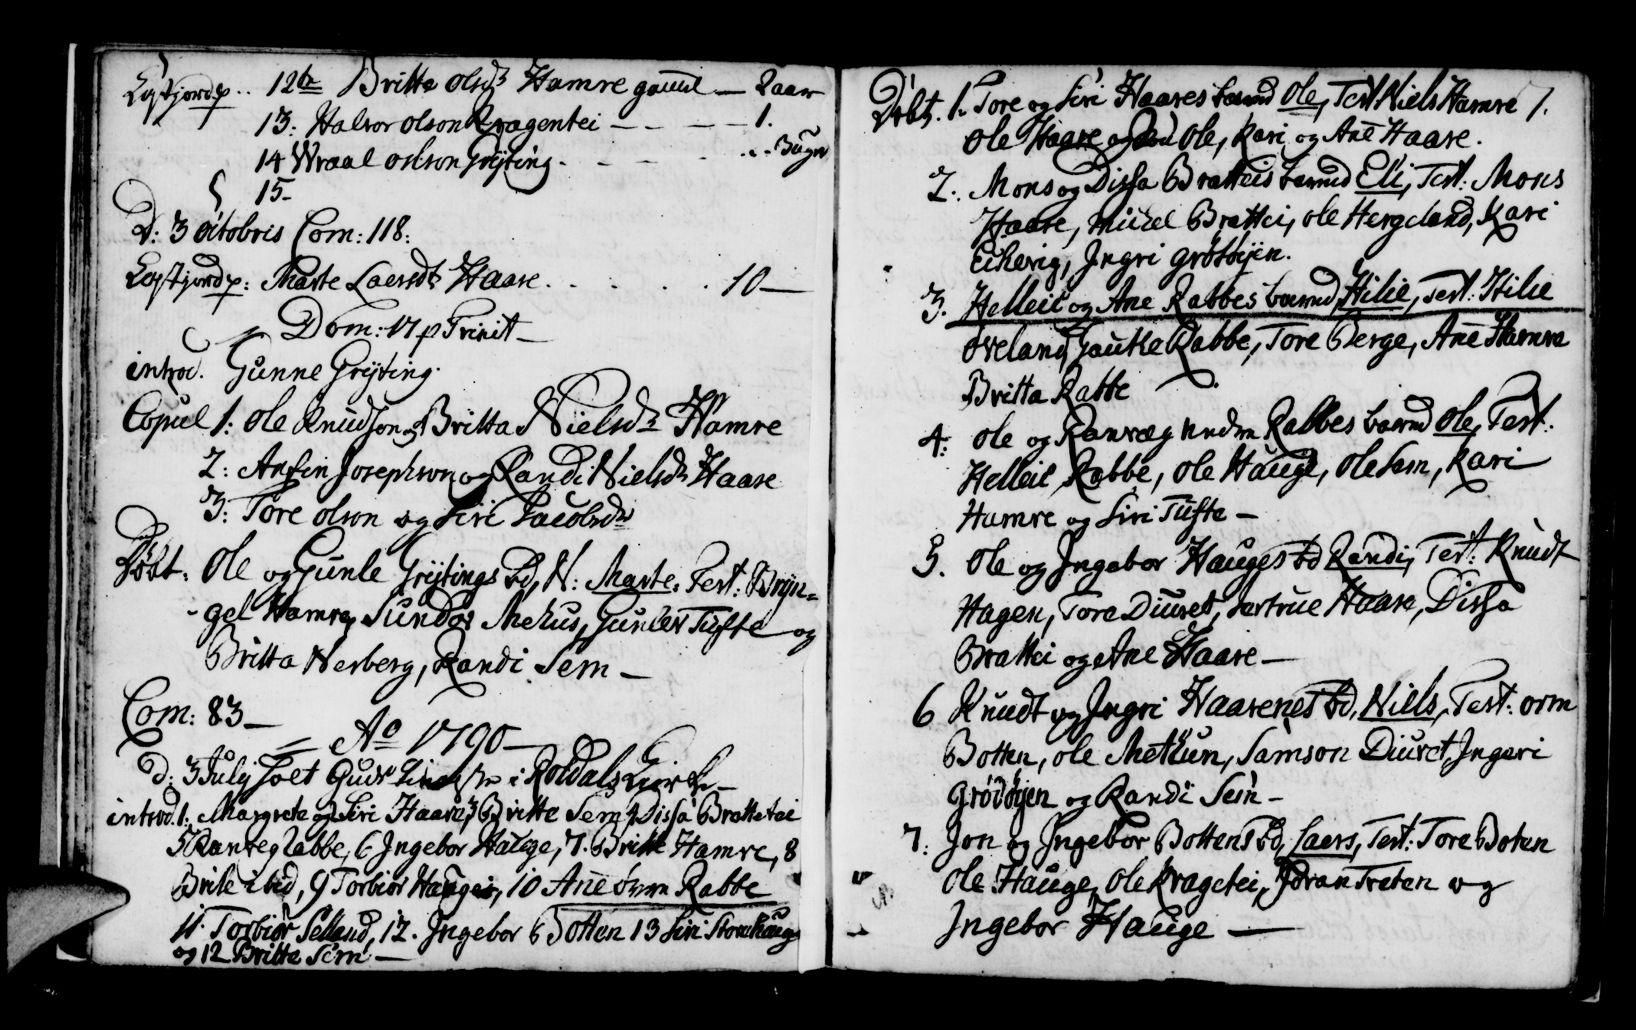 Lystjordp. .. 12te Britte Olsdr Hamre gamel — 2 aar
13: Halvor Olson Kragentei — — — — 1.
14 Wraal Olson Grÿting . — — — . . Bÿgn
15 –
D: 3 Octobris Com: 118:
Lystjordp: Marte Laersdtr Haare . . . . . . 10 —
Dom: 17 p Trinit —
introd. Gunne Grÿting.
Copul 1: Ole Knudson og Britta Nielsdr Hamre
2: Anfin Josephson og Randi Nielsdr Haare
3: Tore Olson og Siri Jacobsdr
Döbt: Ole og Gunle Grÿtings bd, N: Marte. Test: Brÿn=
gel Hamre, Gunder Mehus, Gunder Tufte og
Britta Nesberg, Randi Sem —
Com: 83 —
Ao 1790 —
D: 3 Julÿ holt Guds i Roldals
introd. 1: Margrete og Siri Haare, 3 Britte Sem 4 Dissa Brattetei
5 Ranveg Rabbe, 6 Ingebor Hauge, 7. Britte Hamre, 8
ibid, 9 Torbiör Hauges, 10 Ane Rabbe
11. Torbiör Selland, 12. Ingebor Botten 13 Siri Storehaug
og 12 Britte Sem —
Döbt. 1. Tore og Siri Haares barn Ole, Test. Niels Hamre 7.
Ole Haare og Ole, Kari og Ane Haare.
2. Mons og Dissa Bratteis barn Eli, Test: Mons
Haare, Michel Brattei, Ole Hergeland, Kari
Eikevig, Ingri Grötöÿen.
3. Helleic og Ane Rabbes barn, Hilie, Test: Hilie
Öveland, Gautle Rabbe, Tore Berge, Ane Hamre
Britta Rabbe
4: Ole og Ranveg Rabbes barn Ole, Test:
Helleic Rabbe, Ole Hauge, Ole Sem, Kari
Hamre og Siri Tufte —
5. Ole og Ingebor Hauges bd Randi, Test: Knudt
Hagen, Tore Diuret, Gertrue Haare, Dissa
Brattei og Ane Haare —
6 Knudt og Ingri Haarenes bd, Nills, Test: Orm
Botten, Ole Methun, Samson Diuret, Ingeri
Grödöÿen og Randi Sem —
7: Jon og Ingebor Bottens bd, Laers, Test: Tore Boten
Ole Hauge, Ole Kragetei, Jöran Treten og
Ingebor Hauge —